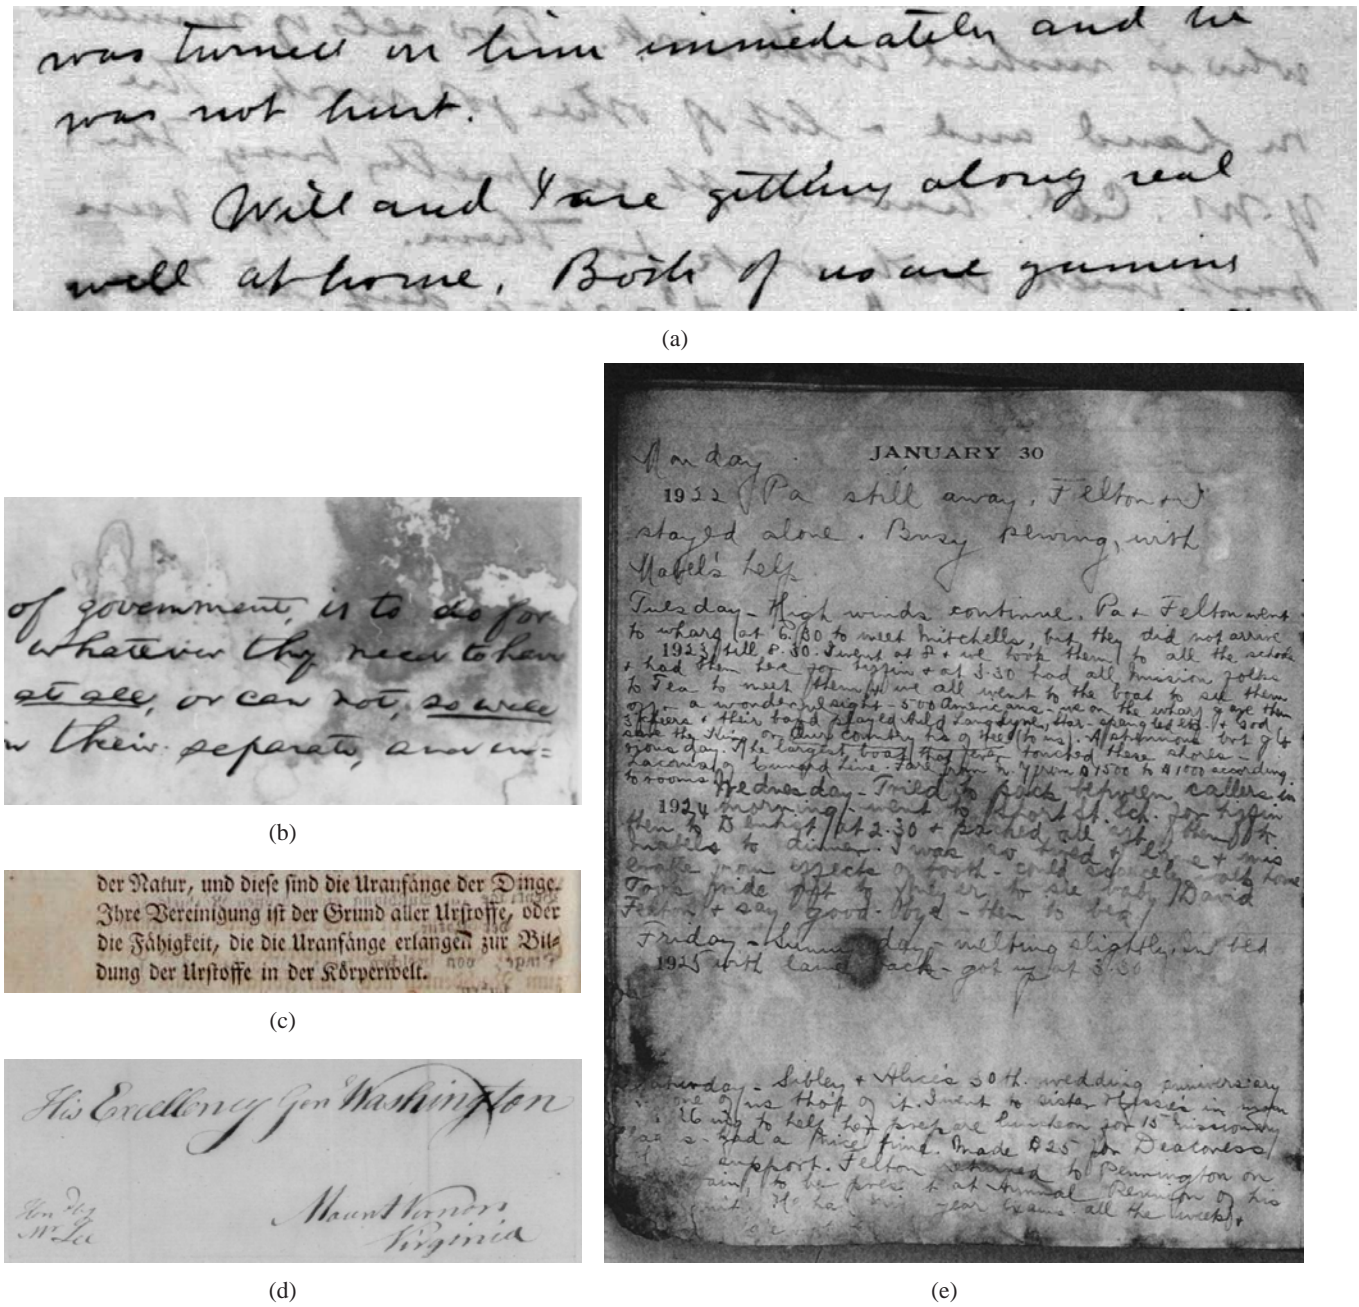 was turned on him immediately and he
was not hurt.
Will and I are getting along real
well at home. Both of us are gaining
(a)
of government, is to do for
whatever they need to have
at all, or can not, so well
in their separate, and in=
(b)
der Natur, und diese sind die Uranfänge der Dinge.
Ihre Vereinigung ist der Grund aller Urstoffe, oder
die Fähigkeit, die die Uranfänge erlangen zur Bil=
dung der Urstoffe in der Körperwelt.
(c)
His Excellency Gen Washington
Mount Vernon
Virginia
Mr Lee
(d)
JANUARY 30
Monday
1922 Pa still away. Felton + I
stayed alone. Busy sewing, with
Mabel's help
Tuesday - High winds continue. Pa + Felton went
to wharf at 6.30 to meet Mitchells, but they did not arrive
1923 till 8.30. I went at 8 + we took them to all the schools
+ had them here for tiffin + at 3.30 had all mission folks
to Tea to meet them + we all went to the boat to see them
off - a wonderful sight - 500 Americans - we on the wharf gave them
3 cheers + their band played Auld Lang Syne, Star-spangled + God
save the King or Our Country tis of thee (to us). A strenuous but glo
rious day. The largest boat that ever touched these shores -
Laconia of Cunard Line. Fare from N.Y. from $1500 to $1000 according
to rooms
Wednesday - Tried to pack between callers in
1924 morning - went to Short St. Sch. for tiffin
then to at 2.30 + packed all aft
to dinner. I was so tired +
more effects of tooth - could scarcely
ride off to to see baby David
Felton + say good-bye - then to bed
Friday - Sunny day - melting slightly. In bed
1925 with lame back - got up at 3.30
Saturday - Sibley + Alice's 30th wedding anniversary
one of us tho't of it. I went to sister in morn
to help her prepare luncheon for 15 missionary
had a nice time. Made $25 for Deaconess
support. Felton returned to Pennington on
to be pres at Annual Reunion of his
year exams all the week +
(e)